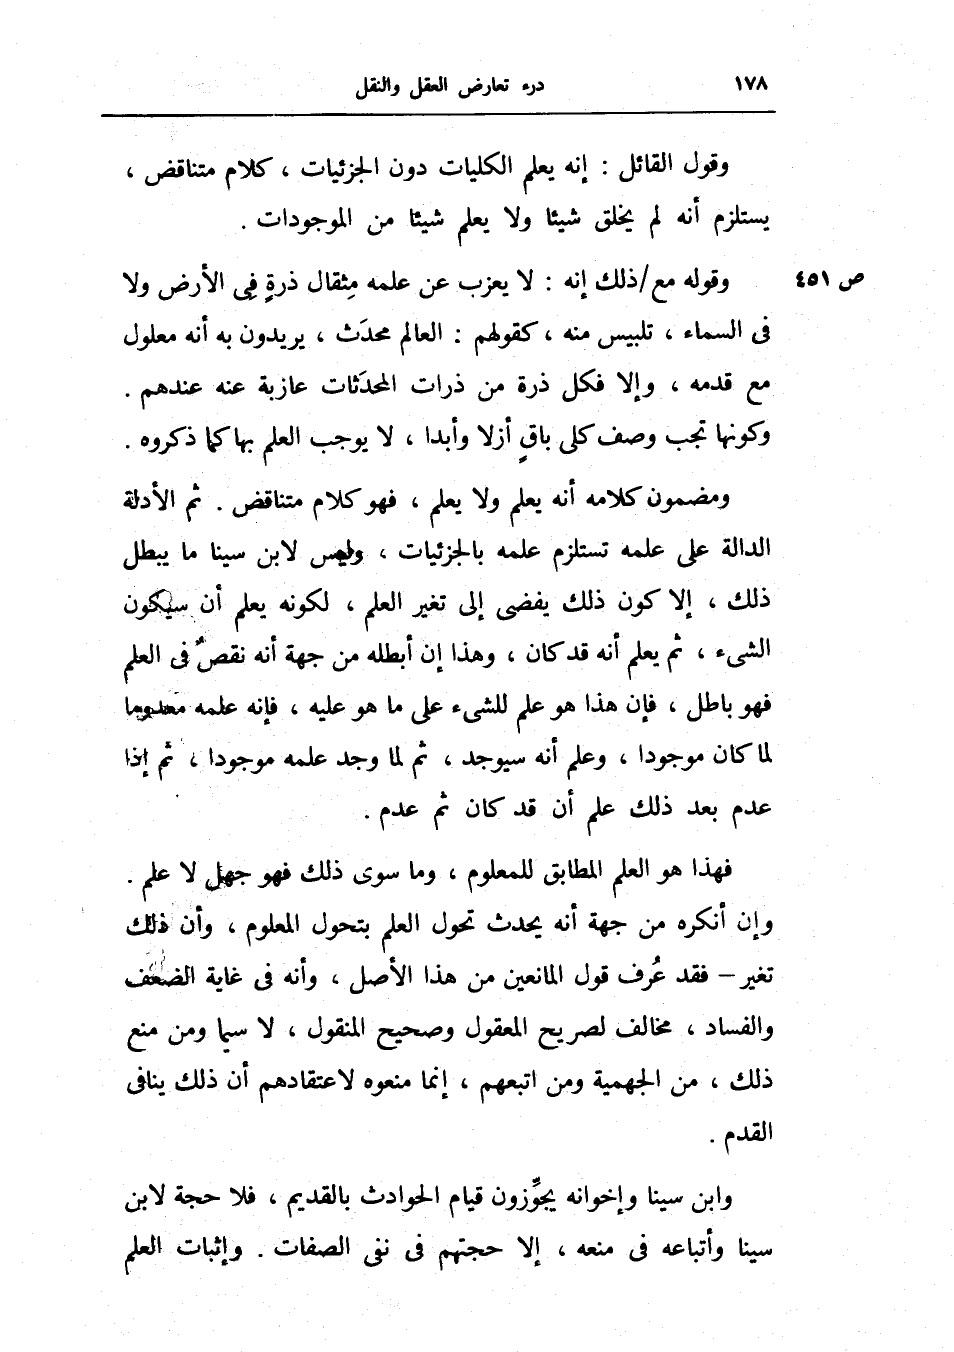 ١٧٨ درء تعارض العقل والنقل
وقول القائل : إنه يعلم الكليات دون الجزئيات ، كلام متناقض ،
يستلزم أنه لم يخلق شيئا ولا يعلم شيئا من الموجودات .
ص ٤٥١ وقوله مع/ذلك إنه : لا يعزب عن علمه مِثقال ذرةٍ فِى الأرض ولا
فى السماء ، تلبيس منه ، كقولهم : العالم محدَث ، يريدون به أنه معلول
مع قدمه ، وإلا فكل ذرة من ذرات المحدَثات عازبة عنه عندهم .
وكونها تجب وصف كلى باقٍ أزلا وأبدا ، لا يوجب العلم بها كما ذكروه .
ومضمون كلامه أنه يعلم ولا يعلم ، فهو كلام متناقض . ثم الأدلة
الدالة على علمه تستلزم علمه بالجزئيات ، وليس لابن سينا ما يبطل
ذلك ، إلا كون ذلك يفضى إلى تغير العلم ، لكونه يعلم أن سيكون
الشىء ، ثم يعلم أنه قد كان ، وهذا إن أبطله من جهة أنه نقصٌ فى العلم
فهو باطل ، فإن هذا هو علم للشىء على ما هو عليه ، فإنه علمه معدوما
لما كان موجودا ، وعلم أنه سيوجد ، ثم لما وجد علمه موجودا ، ثم إذا
عدم بعد ذلك علم أن قد كان ثم عدم .
فهذا هو العلم المطابق للمعلوم ، وما سوى ذلك فهو جهل لا علم .
وإن أنكره من جهة أنه يحدث تحول العلم بتحول المعلوم ، وأن ذلك
تغير – فقد عُرف قول المانعين من هذا الأصل ، وأنه فى غاية الضعف
والفساد ، مخالف لصريح المعقول وصحيح المنقول ، لا سيما ومن منع
ذلك ، من الجهمية ومن اتبعهم ، إنما منعوه لاعتقادهم أن ذلك ينافى
القدم .
وابن سينا وإخوانه يجوِّزون قيام الحوادث بالقديم ، فلا حجة لابن
سينا وأتباعه فى منعه ، إلا حجتهم فى نفى الصفات . وإثبات العلم